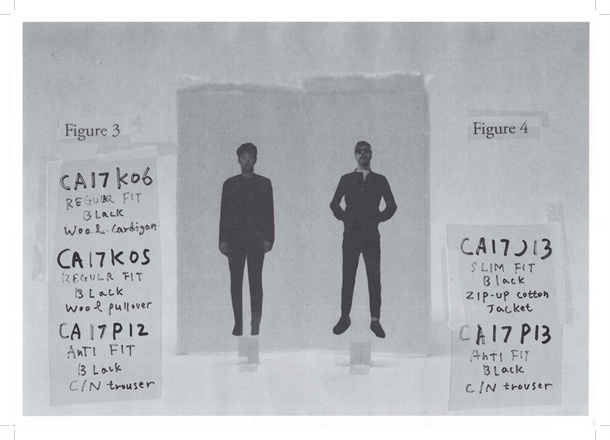 Figure 3
CA17K06
REGULR FIT
Black
Wool cardigan
CA17K05
REGULR FIT
Black
Wool pullover
CA17P12
AnTI FIT
Black
C/N trouser
Figure 4
CA17J13
SLIM FIT
Black
ZIP-UP cotton
Jacket
CA17P13
AnTI FIT
Black
C/N trouser